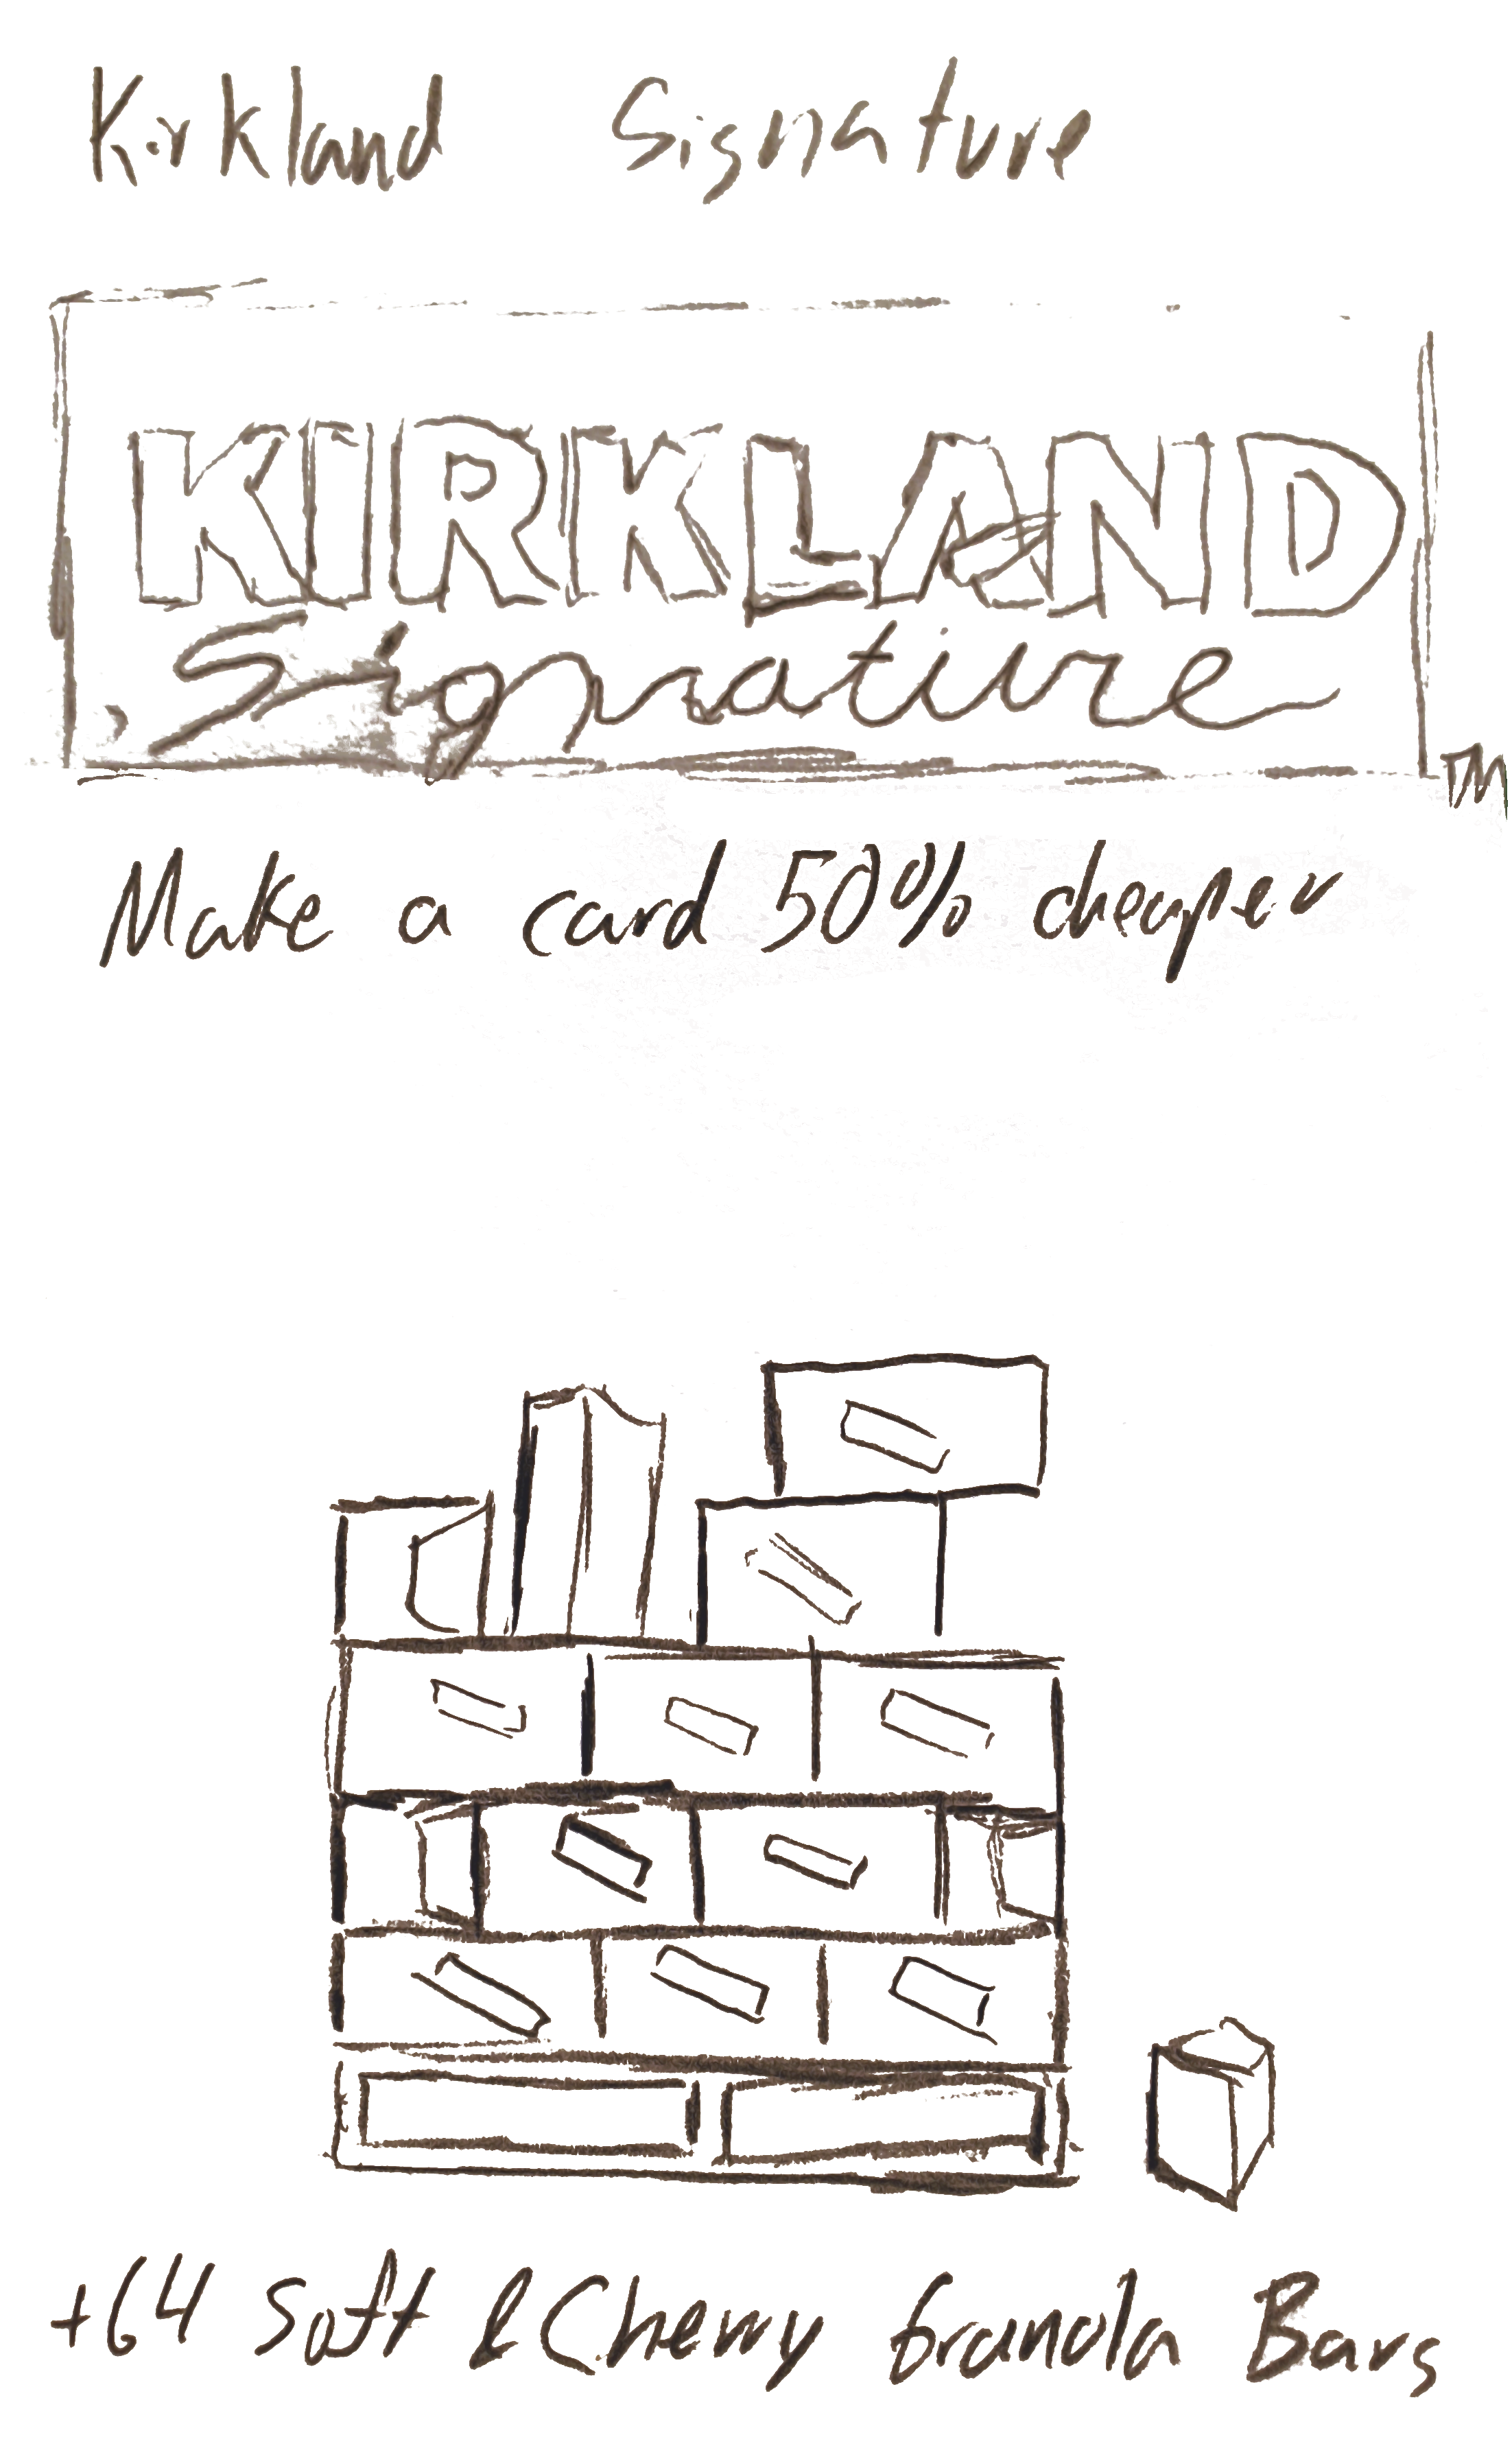 Kirkland Signature
KIRKLAND
Signature
TM
Make a card 50% cheaper
+64 Soft & Chewy Granola Bars